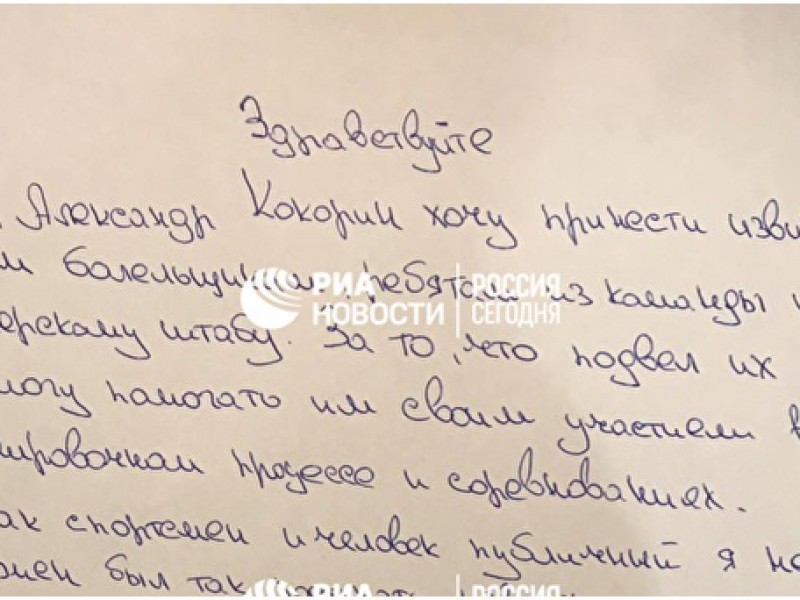 Здравствуйте
Александр Кокорин хочу принести изви
м болельщикам, ребятам из команды и
ерскому штабу. За то, что подвел их
могу помогать им своим участием в
ировочном процессе и соревнованиях.
ак спортсмен и человек публичный я не
жен был так
РИА НОВОСТИ
РОССИЯ СЕГОДНЯ
РИА
РОССИЯ